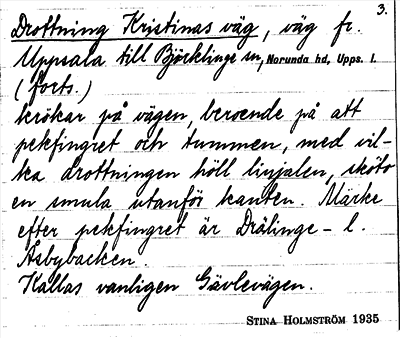 3.
Drottning Kristinas väg, väg fr.
Uppsala till Björklinge sn, Norunda hd, Upps. l.
(forts.)
krökar på vägen, beroende på att
pekfingret och tummen, med vil-
ka drottningen höll linjalen, sköto
en smula utanför kanten. Märke
efter pekfingret är Drälinge- l.
Åsbybacken.
Kallas vanligen Gävlevägen.
STINA HOLMSTRÖM 1935